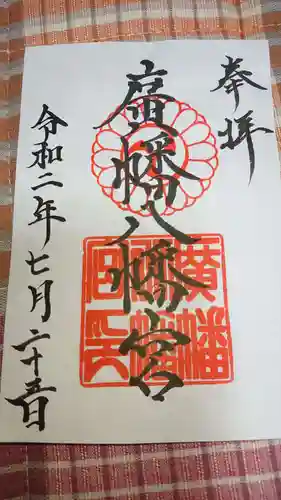 奉拝
廣幡八幡宮
廣幡八幡宮印
令和二年七月二十五日